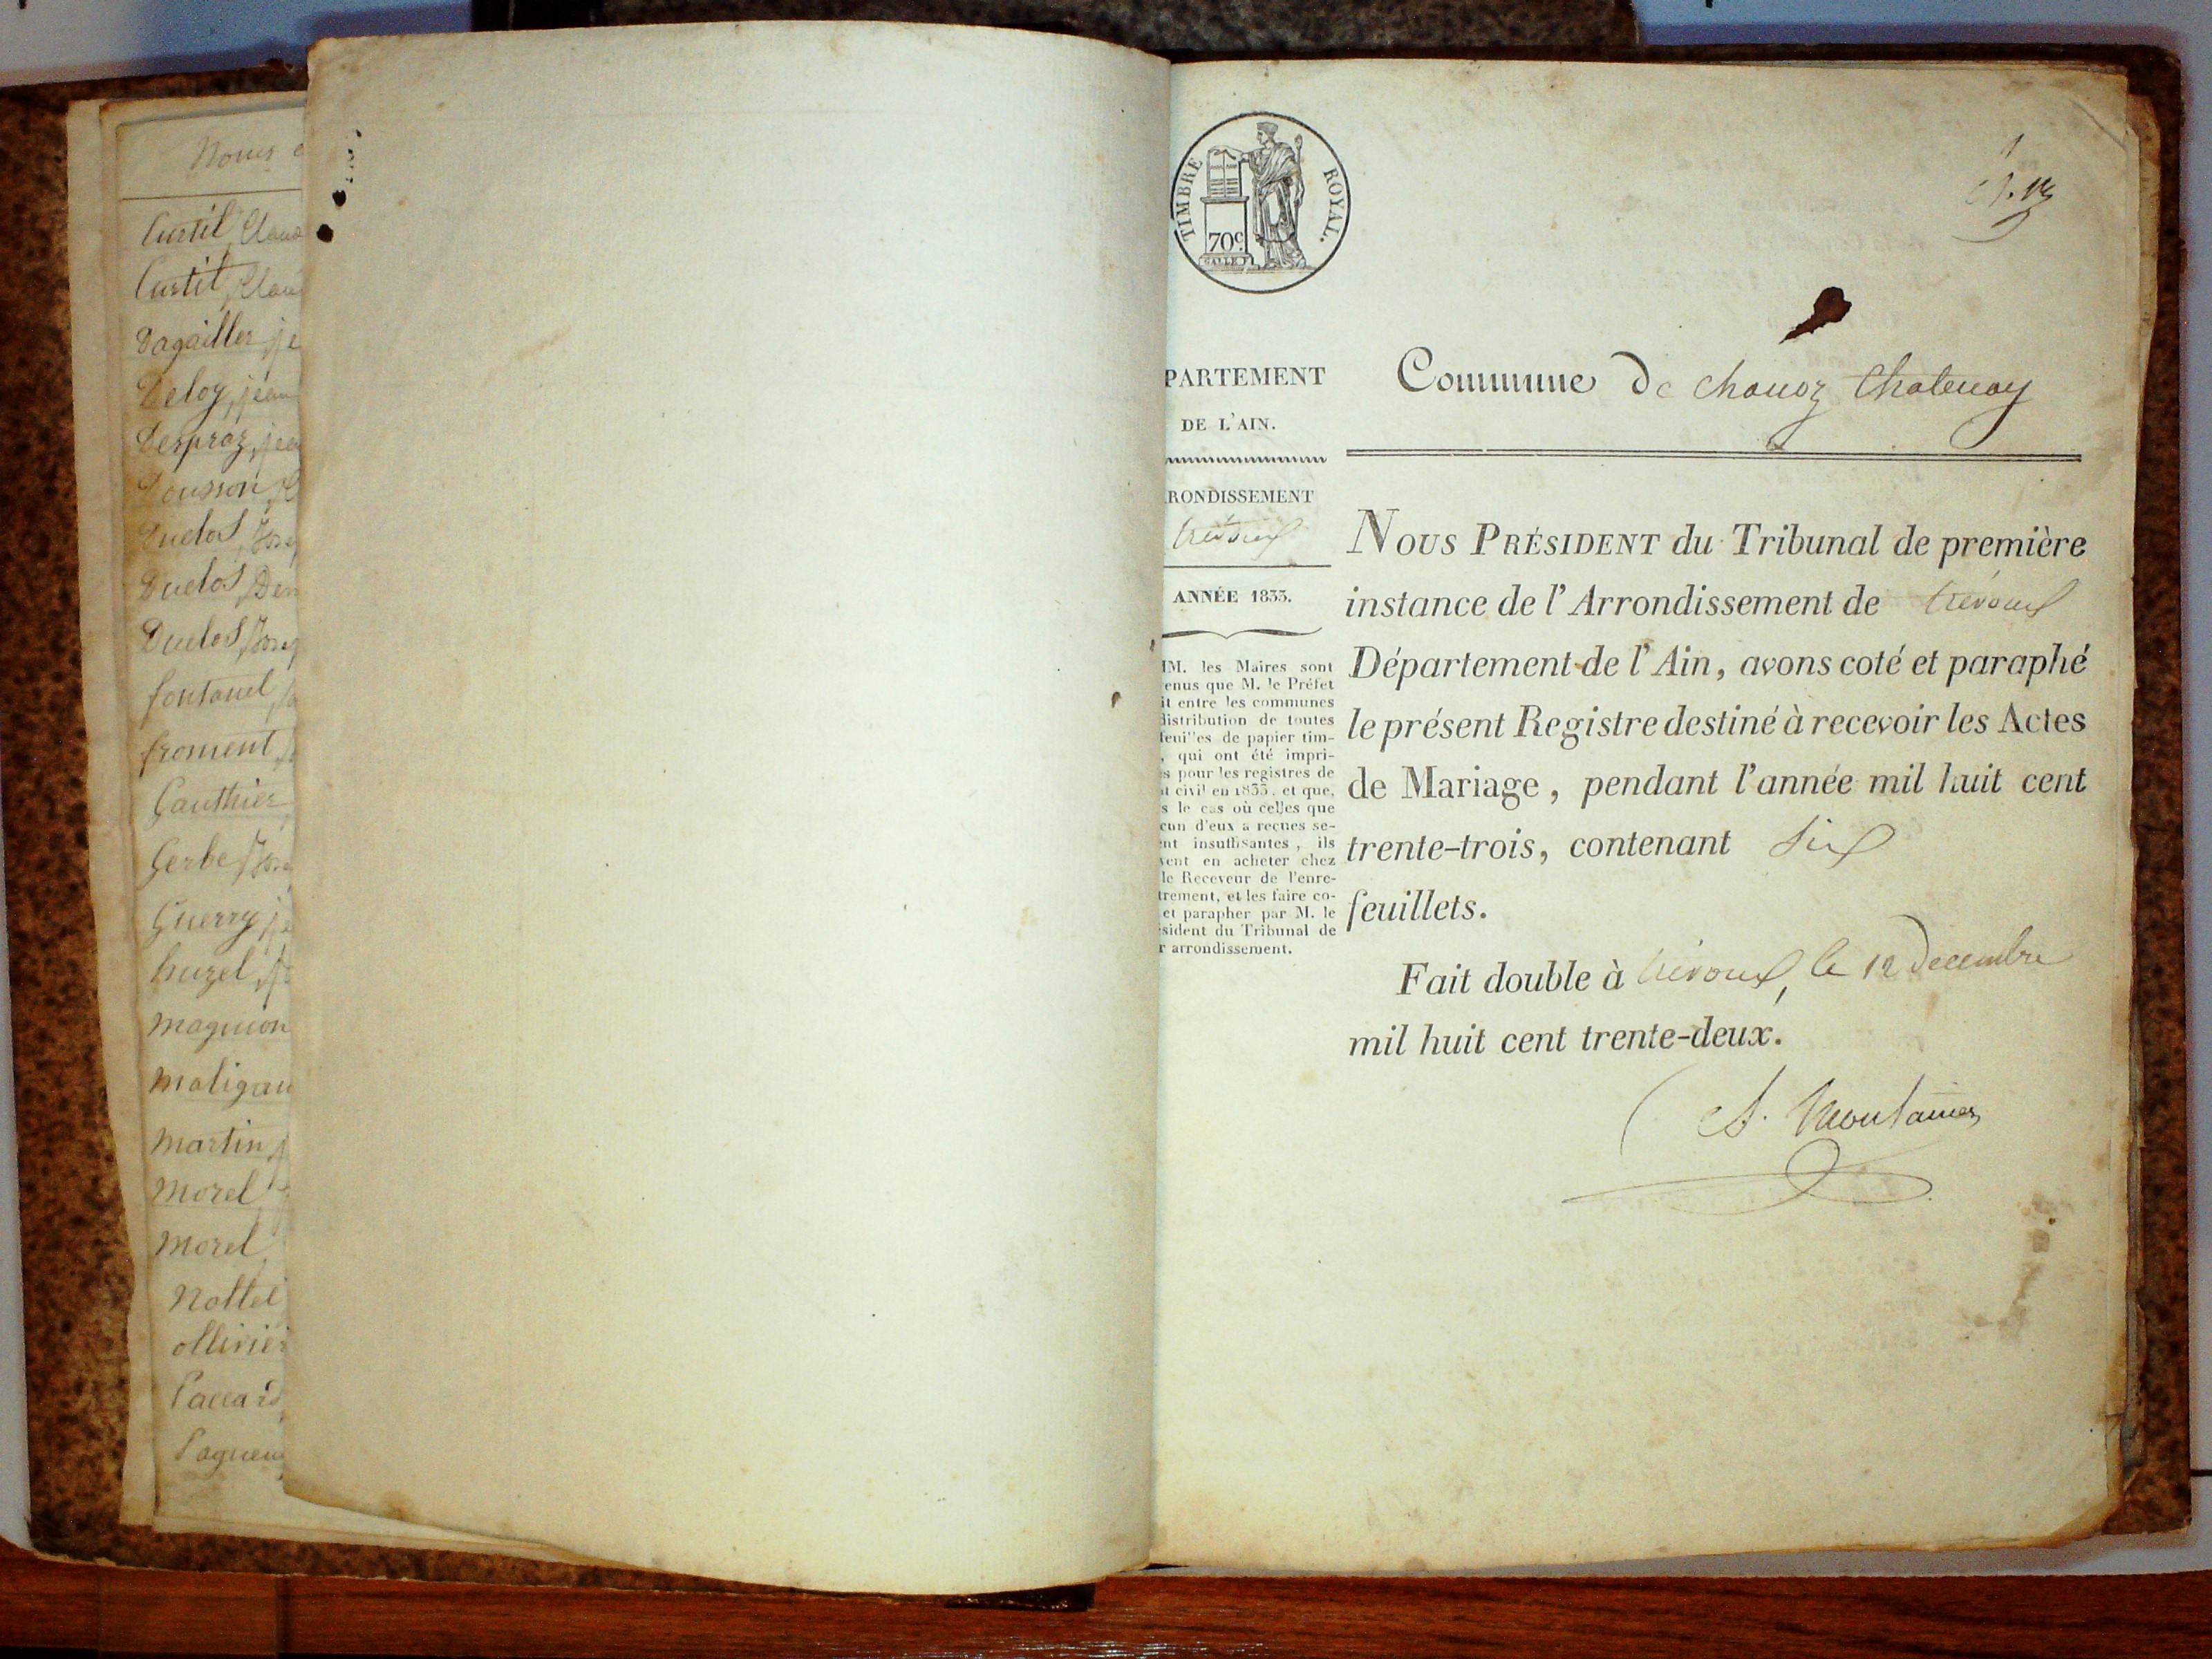 Noms
Curtil, Claud
Curtil, Clau
Dagailler, je
Deloy, jean
Desproz, jea
Dousson
Duclos, Jose
Duclos, Den
Duclos, Jose
fontanel
froment
Gauthier
Gerbe, Jose
Guerry, je
huzel
Magnion
Martin
Morel
Morel
ollivier
Paccard
TIMBRE ROYAL.
70c.
Commune de chanoz Chatenay
PARTEMENT
DE L'AIN.
RONDISSEMENT
trévoux
ANNÉE 1833.
MM. les Maires sont
enus que M. le Préfet
it entre les communes
distribution de toutes
feuilles de papier tim-
, qui ont été impri-
s pour les registres de
t civil en 1833, et que,
s le cas où celles que
cun d'eux a reçues se-
nt insuffisantes, ils
vent en acheter chez
le Receveur de l'enre-
trement, et les faire co-
et parapher par M. le
sident du Tribunal de
r arrondissement.
NOUS PRÉSIDENT du Tribunal de première
instance de l'Arrondissement de trévoux
Département de l'Ain, avons coté et paraphé
le présent Registre destiné à recevoir les Actes
de Mariage, pendant l'année mil huit cent
trente-trois, contenant Six
feuillets.
Fait double à trévoux, le 12 Decembre
mil huit cent trente-deux.